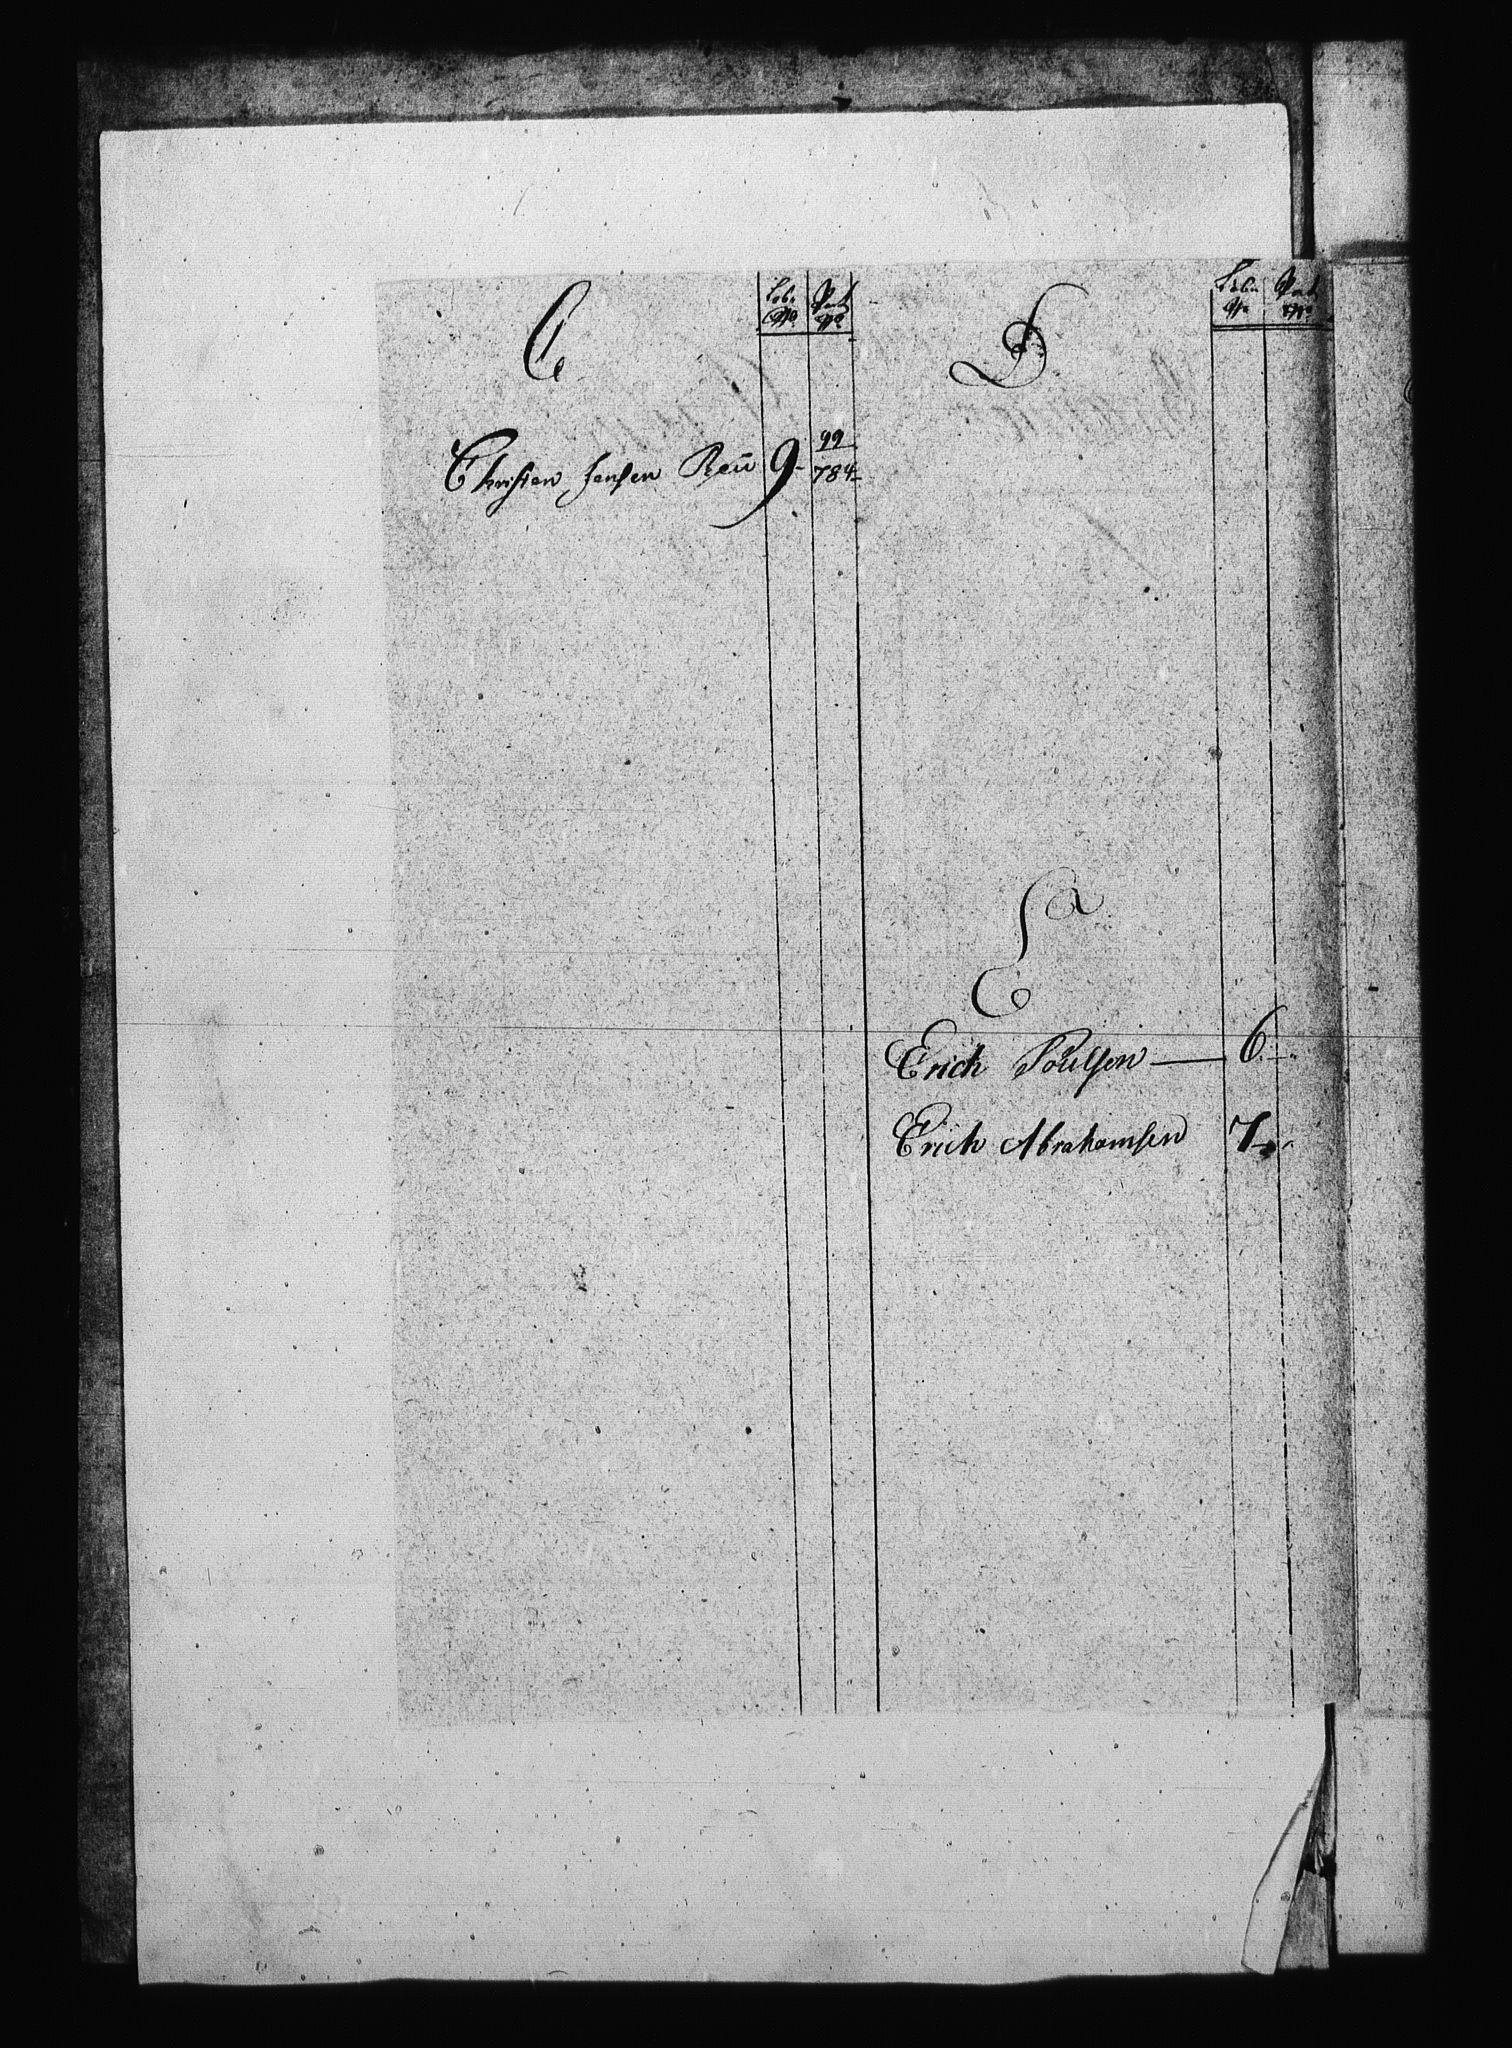 C
Christen Jensen Reü 9 99
784
D
E
Erich Poülsen 6
Erich Abrahamsen 7